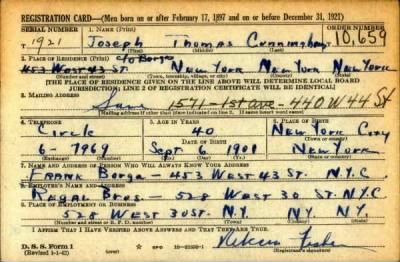 REGISTRATION CARD—(Men born on or after February 17, 1897 and on or before December 31, 1921)
SERIAL NUMBER 1. NAME (Print) ORDER NUMBER
T 1921 Joseph Thomas Cunningham 10,659
(First) (Middle) (Last)
2. PLACE OF RESIDENCE (Print) c/o Borga
453 West 43 St. New York New York New York
(Number and street) (Town, township, village, or city) (County) (State)
[THE PLACE OF RESIDENCE GIVEN ON THE LINE ABOVE WILL DETERMINE LOCAL BOARD
JURISDICTION; LINE 2 OF REGISTRATION CERTIFICATE WILL BE IDENTICAL]
3. MAILING ADDRESS
Same 1571-1st ave - 440 W 44 St
[Mailing address if other than place indicated on line 2. If same insert word same]
4. TELEPHONE 5. AGE IN YEARS 6. PLACE OF BIRTH
Circle 40 New York City
DATE OF BIRTH (Town or county)
6-7969 Sept 6 1901 New York
(Exchange) (Number) (Mo.) (Day) (Yr.) (State or country)
7. NAME AND ADDRESS OF PERSON WHO WILL ALWAYS KNOW YOUR ADDRESS
Frank Borga - 453 West 43 St. N.Y.C
8. EMPLOYER'S NAME AND ADDRESS
Regal Bros. - 528 West 30 St. N.Y.C
9. PLACE OF EMPLOYMENT OR BUSINESS
528 West 30 St. N.Y. N.Y. N.Y.
(Number and street or R. F. D. number) (Town) (County) (State)
I AFFIRM THAT I HAVE VERIFIED ABOVE ANSWERS AND THAT THEY ARE TRUE.
D. S. S. Form 1
(Revised 1-1-42) (over)